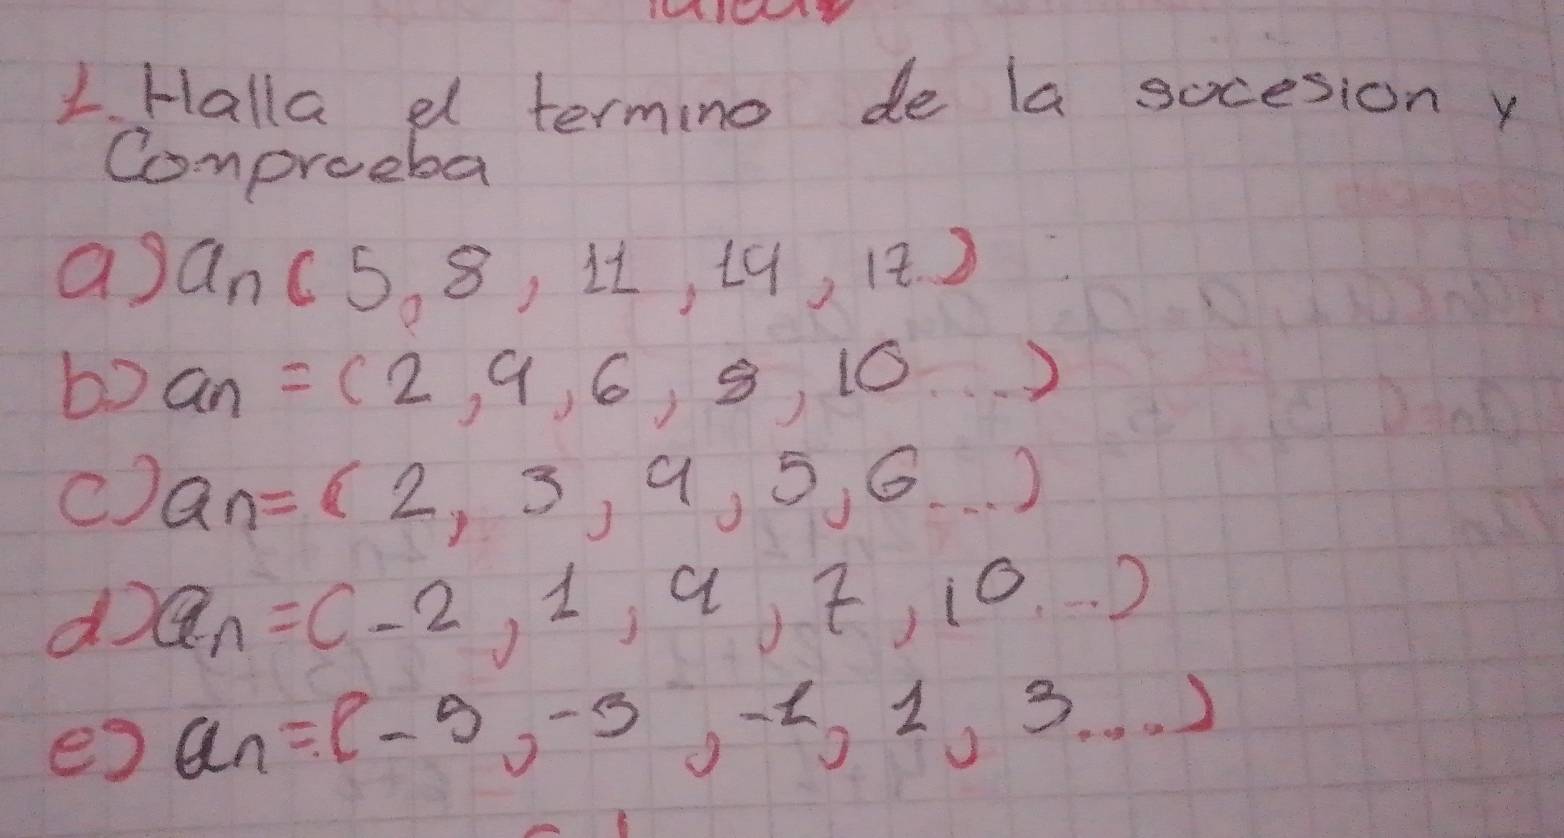 1. Halla el termino de la sucesion y
Comprueba
a) an ( 5, 8, 11, 14, 17.)
b) an = (2, 4, 6, 8, 10 ...)
c) an = ( 2, 3, 4, 5, 6 ...)
d) an = (-2, 1, 4, 7, 10...)
e) an = (-5, -3, -1, 1, 3....)